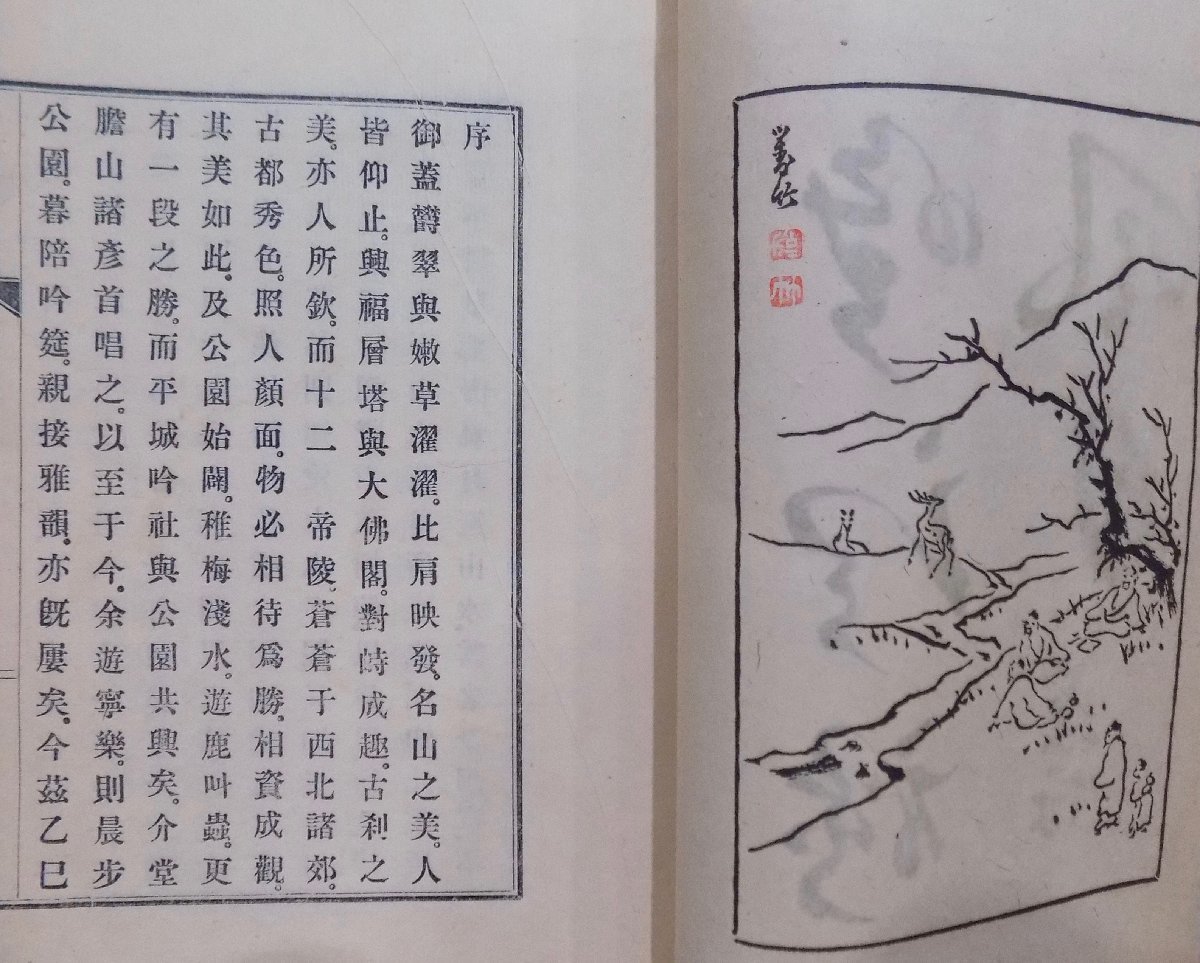 序
御蓋欝翠與嫩草濯濯。比肩映發。名山之美。人
皆仰止。興福層塔與大佛閣。對峙成趣。古刹之
美。亦人所欽。而十二 帝陵。蒼蒼于西北諸郊。
古都秀色。照人顏面。物必相待爲勝。相資成觀。
其美如此。及公園始闢。稚梅淺水。遊鹿叫蟲。更
有一段之勝。而平城吟社與公園共興矣。介堂
膽山諸彥首唱之。以至于今。余遊寧樂。則晨步
公園。暮陪吟筵。親接雅韻。亦旣屢矣。今茲乙巳